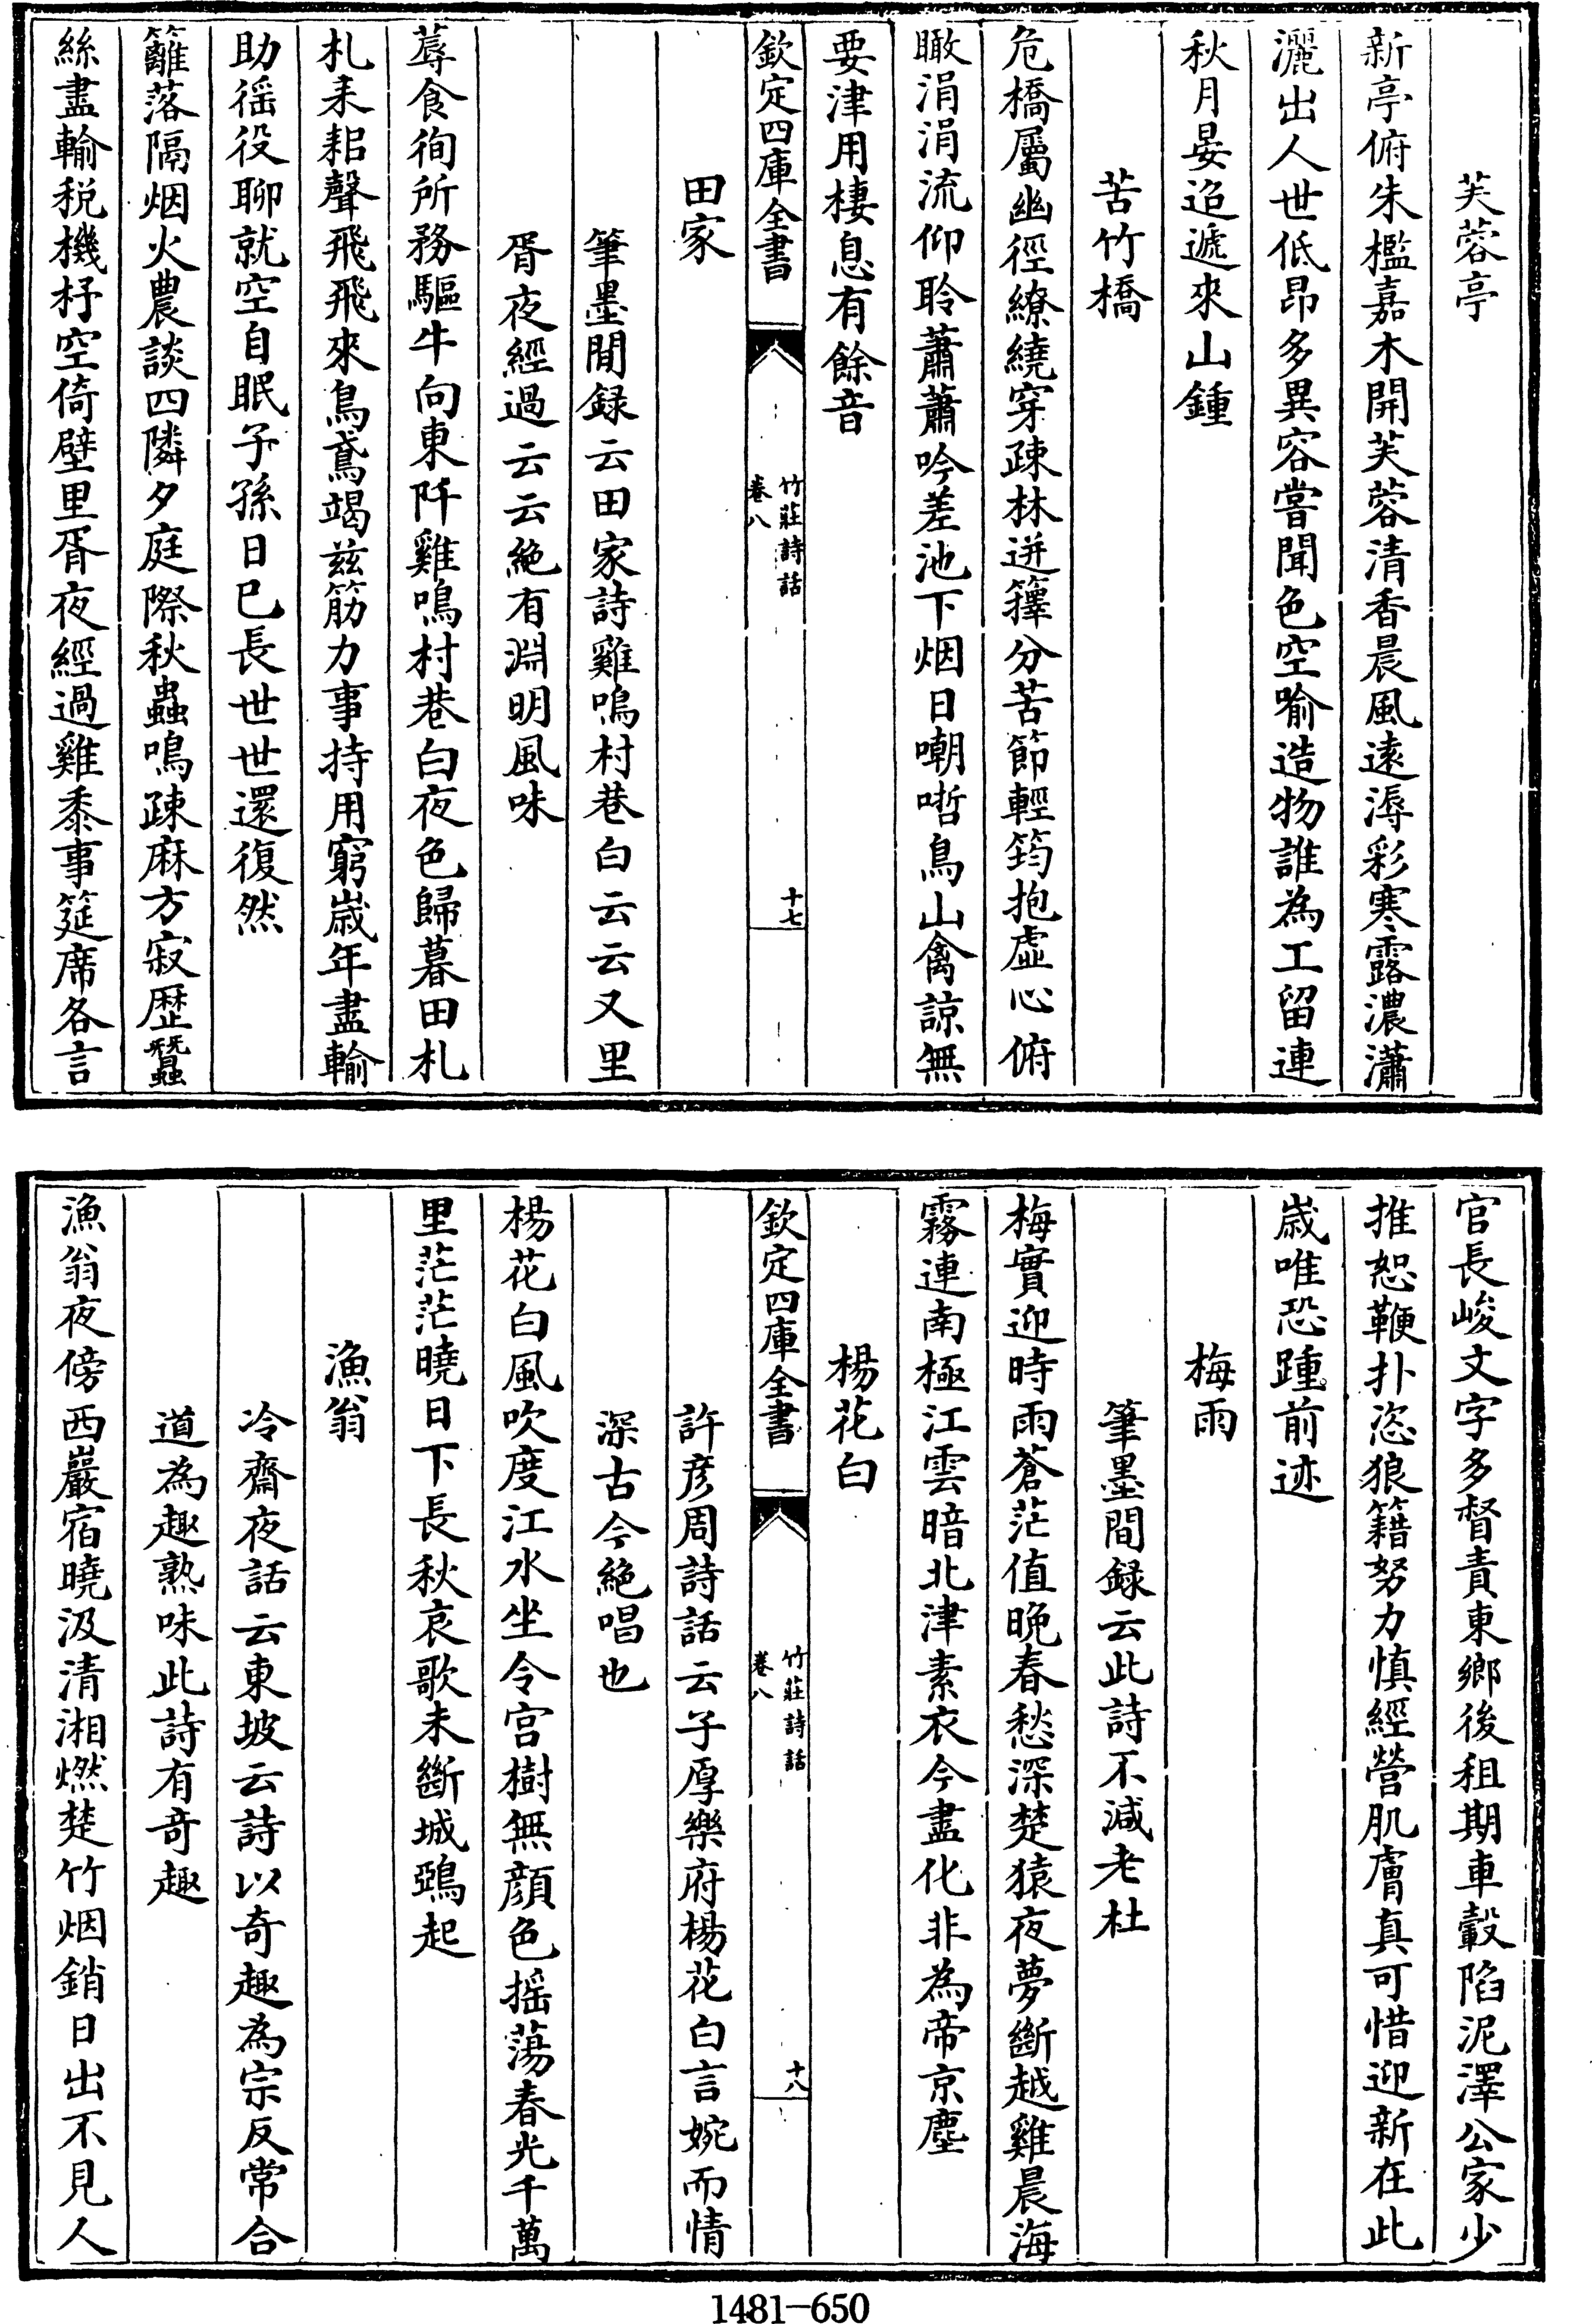 芙蓉亭
新亭俯朱檻嘉木開芙蓉清香晨風逺溽彩寒露濃瀟
灑出人世低昂多異容嘗聞色空喻造物誰為工留連
秋月晏迢遞來山鍾
苦竹橋
危橋屬幽徑繚繞穿疎林迸籜分苦節輕筠抱虚心俯
瞰涓涓流仰聆蕭蕭吟差池下烟日嘲哳鳥山禽諒無
要津用棲息有餘音
欽定四庫全書
竹莊詩話
卷八
十七
田家
筆墨閒録云田家詩雞鳴村巷白云云又里
胥夜經過云云絶有淵明風味
蓐食徇所務驅牛向東阡雞鳴村巷白夜色歸暮田札
札耒耜聲飛飛來鳥鳶竭兹筋力事持用窮嵗年盡輸
助徭役聊就空自眠子孫日已長世世還復然
籬落隔烟火農談四隣夕庭際秋蟲鳴疎麻方寂歴蠶
絲盡輸税機杼空倚壁里胥夜經過雞黍事筵席各言
官長峻文字多督責東鄉後租期車轂陷泥澤公家少
推恕鞭扑恣狼籍努力慎經營肌膚真可惜迎新在此
嵗唯恐踵前迹
梅雨
筆墨閒録云此詩不減老杜
梅實迎時雨蒼茫值晚春愁深楚猿夜夢斷越雞晨海
霧連南極江雲暗北津素衣今盡化非為帝京塵
楊花白
欽定四庫全書
竹莊詩話
卷八
十八
許彦周詩話云子厚樂府楊花白言婉而情
深古今絶唱也
楊花白風吹度江水坐令宫樹無顔色摇蕩春光千萬
里茫茫曉日下長秋哀歌未斷城鵶起
漁翁
冷齋夜話云東坡云詩以奇趣為宗反常合
道為趣熟味此詩有奇趣
漁翁夜傍西巖宿曉汲清湘燃楚竹烟銷日出不見人
1481-650